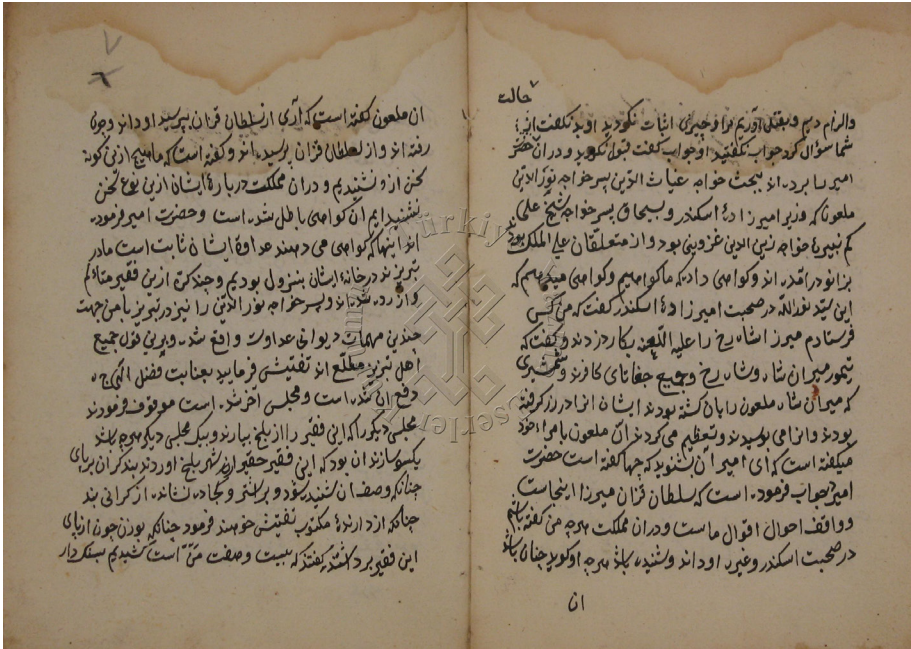 حالت
والزام دهم و بقتل آوریم مرا و چیزی اثبات نکردید اوید نکفت این
شما سؤال کرد جواب نکفتید او جواب کفت قبول نکردید و دران
امیر را برده اند ببحث خواجه غیاث الدین پسر خواجه نورالدین
ملعونا که وزیر امیرزاده اسکندر و بسحاق پسر خواجه شیخ علما
قم نبیره خواجه زین الدین غزوینی بود و از متعلقان علی الملک بود
بزانو درآمده اند و کواهی داده که ما کواهیم و کواهی میدهیم که
این سید نورالله در صحبت امیرزاده اسکندر کفت که من کسی
فرستادم میرزا شاه رخ را علیه اللعنه بکارد زدند و کفت که
تیمور میران شاه و شاه رخ و جمیع جغاتای کافرند و شمشیری
که میران شاه ملعون را بان کشته بودند ایشان انرا در زر کرفته
بودند و انرا می بوسیدند و تعظیم می کردند ان ملعون بامرا خود
میکفته است که ای امیر ان بشنوید که چها کفته است حضرت
امیر جواب فرموده است که سلطان قران میرزا اینجاست
و واقف احوال اقوال ماست و دران مملکت هرچه من کفته باشم
در صحبت اسکندر و غیره او داند و شنیده باشد هرچه او کوید چنان باشد
ان
ان ملعون کفته است که آری از سلطان قران بپرسید او داند و چون
رفته اند و از سلطان قران پرسیده اند و کفته است که ما هیچ ازین کونه
سخن از و نشنیدیم و دران مملکت درباره ایشان ازین نوع سخن
نشنیده ایم ان کواهی باطل شده است و حضرت امیر فرموده
اند اینها که کواهی می دهند عداوة ایشان ثابت است مادر
تبریز ند در خانه ایشان بنزول بودیم و چند کرة ازین فقیر متألم
و ازرده شده اند و پسر خواجه نورالدین را نیز در تبریز با من جهت
چندین مهمات دیوانی عداوت واقع شده و برین قول جمیع
اهل تبریز مطلع اند تفتیش فرمایند بعنایت فضل الهی ج ه
دفع ان شده است و مجلس اخر شده است موقوف فرمودند
مجلس دیکر را که این فقیر را از بلخ بیارند و بیک مجلس دیکر هرچه باشد
یکسو سازند ان بود که این فقیر حقیر را از شهر بلخ اوردند بند کران بر پای
چنانکه وصف ان شنیده شود و بر اشتر و کجاده نشانده از کرانی بند
چنانکه از دارندۀ مکتوب تفتیش خوهند فرمود چنانکه بوزن چون از پای
این فقیر برداشتند کفتند که بیست و هفت من است کشیدیم بسنک دار